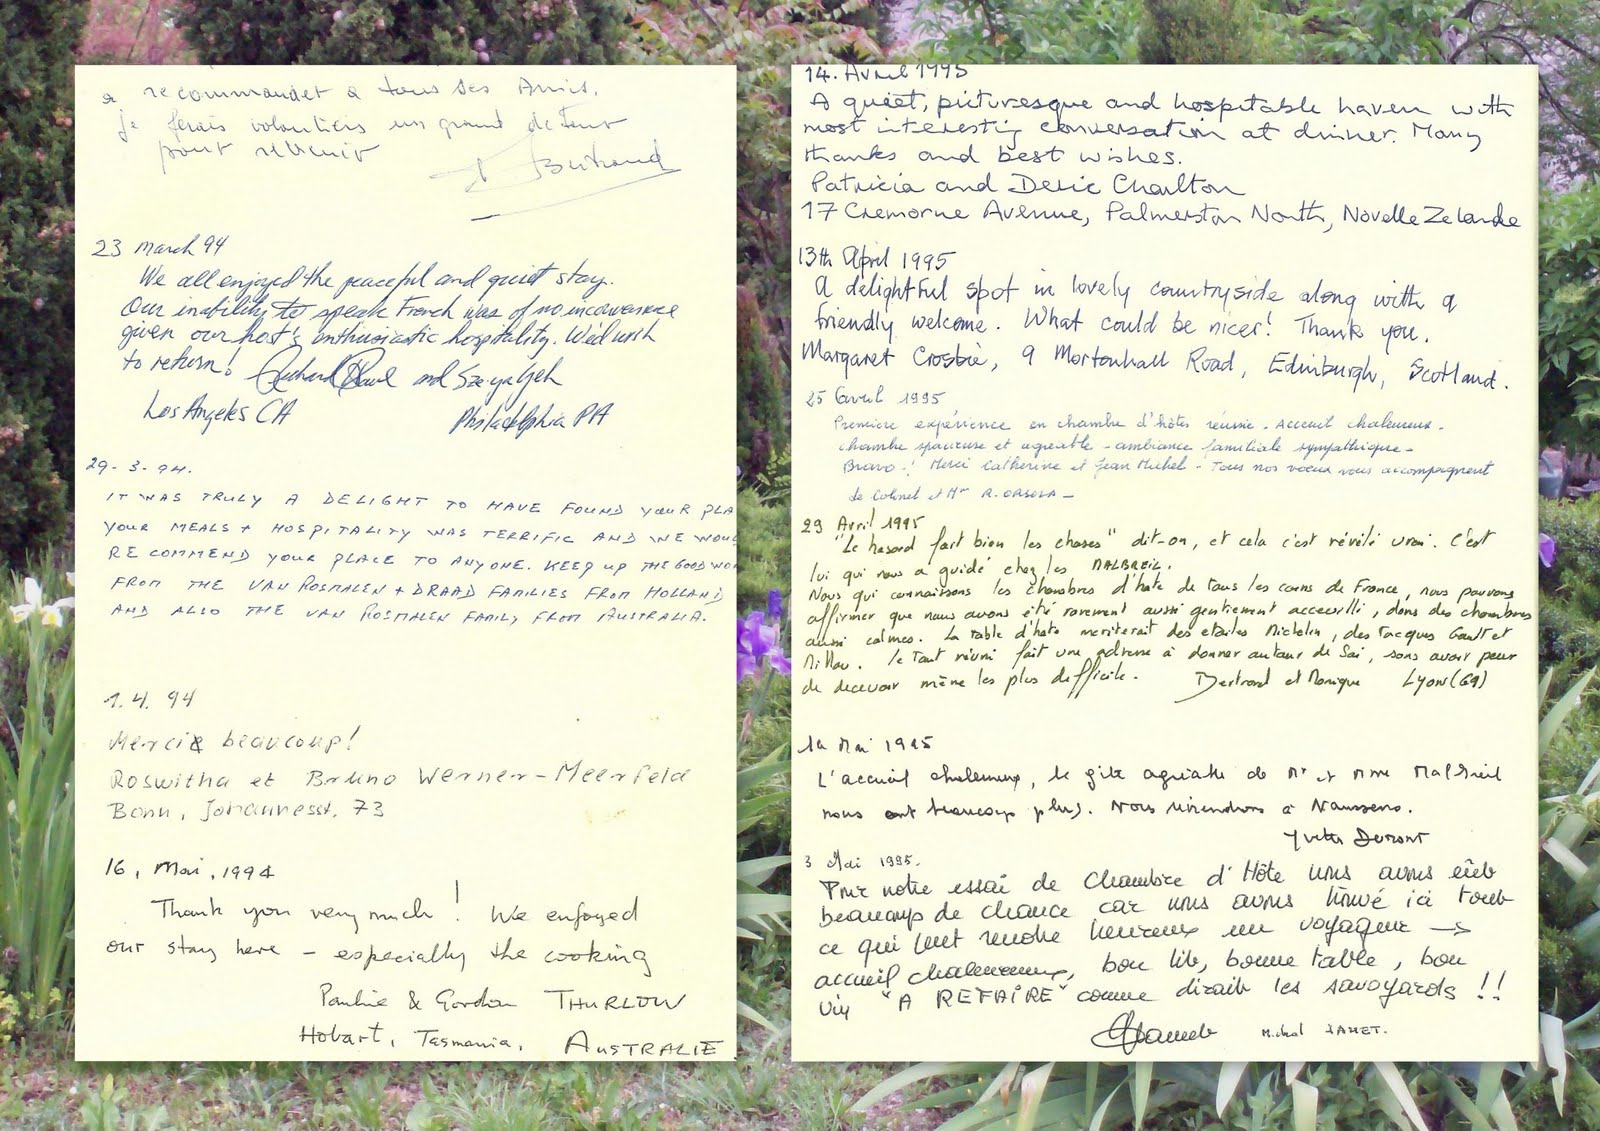 a recommander à tous ses Amis.
je ferais volontiers un grand detour
pour revenir
Bertrand
23 March 94
We all enjoyed the peaceful and quiet stay.
Our inability to speak French was of no inconvenience
given our host's enthusiastic hospitality. We'd wish
to return! Richard and Sze-ya Yeh
Los Angeles CA Philadelphia PA
29-3-94.
IT WAS TRULY A DELIGHT TO HAVE FOUND YOUR PLA
YOUR MEALS + HOSPITALITY WAS TERRIFIC AND WE WOU
RECOMMEND YOUR PLACE TO ANYONE. KEEP UP THE GOOD WO
FROM THE VAN ROSMALEN + DRAAD FAMILIES FROM HOLLAND
AND ALSO THE VAN ROSMALEN FAMILY FROM AUSTRALIA.
1.4.94
Merci beaucoup!
Roswitha et Bruno Werner-Meerfeld
Bonn, Johannesst. 73
16, Mai, 1994
Thank you very much! We enjoyed
our stay here - especially the cooking
Pauline & Gordon THURLOW
Hobart, Tasmania, AUSTRALIE
14. Avril 1995
A quiet, picturesque and hospitable haven with
most interesting conversation at dinner. Many
thanks and best wishes.
Patricia and Deric Charlton
17 Cremorne Avenue, Palmerston North, Novelle Zelande
13th April 1995
A delightful spot in lovely countryside along with a
friendly welcome. What could be nicer! Thank you.
Margaret Crosbie, 9 Mortonhall Road, Edinburgh, Scotland.
25 avril 1995
Première expérience en chambre d'hôtes réussie - Accueil chaleureux -
chambre spacieuse et agréable - ambiance familiale sympathique -
Bravo! Merci Catherine et Jean Michel - Tous nos voeux vous accompagnent
Le Colonel et Mme R. ORSOLA -
29 Avril 1995
"Le hasard fait bien les choses" dit-on, et cela c'est révélé vrai. C'est
lui qui nous a guidé chez les MALBREIL.
Nous qui connaissons les chambres d'hôte de tous les coins de France, nous pouvons
affirmer que nous avons été rarement aussi gentiment acceuilli, dans des chambres
aussi calmes. La table d'hôte meriterait des etoiles Michelin, des Jacques Gault et
Millau. Le tout réuni fait une adresse à donner autour de Soi, sans avoir peur
de decevoir même les plus difficile. Bertrand et Monique Lyon (69)
1er Mai 1995
L'accueil chaleureux, le gite agréable de Mr et Mme Malbreil
nous ont beaucoup plus. Nous reviendrons à Naussens.
Yvette Dumont
3 Mai 1995.
Pour notre essai de chambre d'Hôte nous avons eût
beaucoup de chance car nous avons trouvé ici tout
ce qui peut rendre heureux un voyageur →
accueil chaleureux, bon lit, bonne table, bon
vin "A REFAIRE" comme dirait les savoyards !!
Michel JAMET.